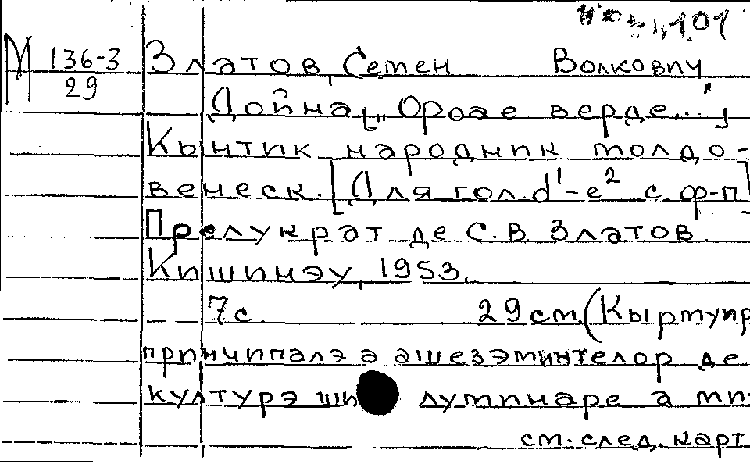 М 136-3
29
Златов, Семен Волкович
Дойна ["Фрозе верде..."]
Кынтик народник молдо-
венеск. [Для гол. d¹-e² с ф-п]
Прелукрат де С.В. Златов.
Кишинэу, 1953.
7 с. 29 см. (Кыртуир
принчипалэ а ашезэминтелор де
културэ ши луминаре а ми-
см. след. карт